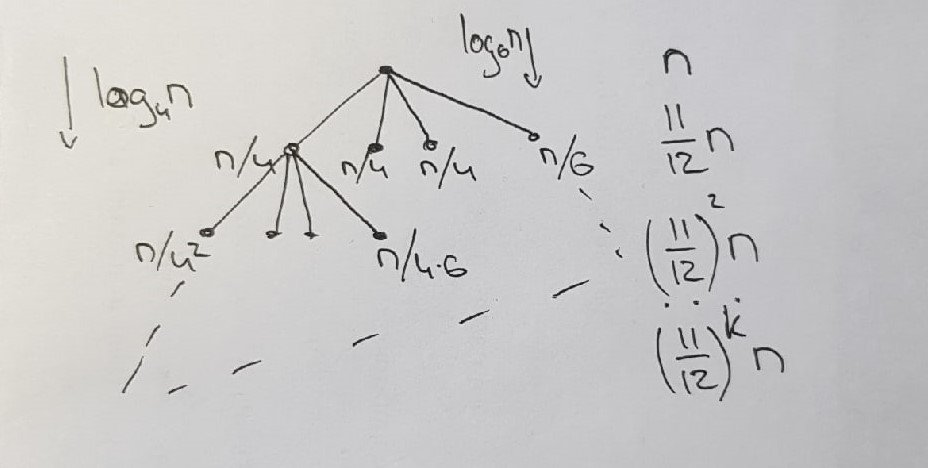 log₆n
n
log₄n
n/4 n/4 n/4 n/6
11/12 n
n/4² n/4·6
(11/12)² n
(11/12)ᵏ n